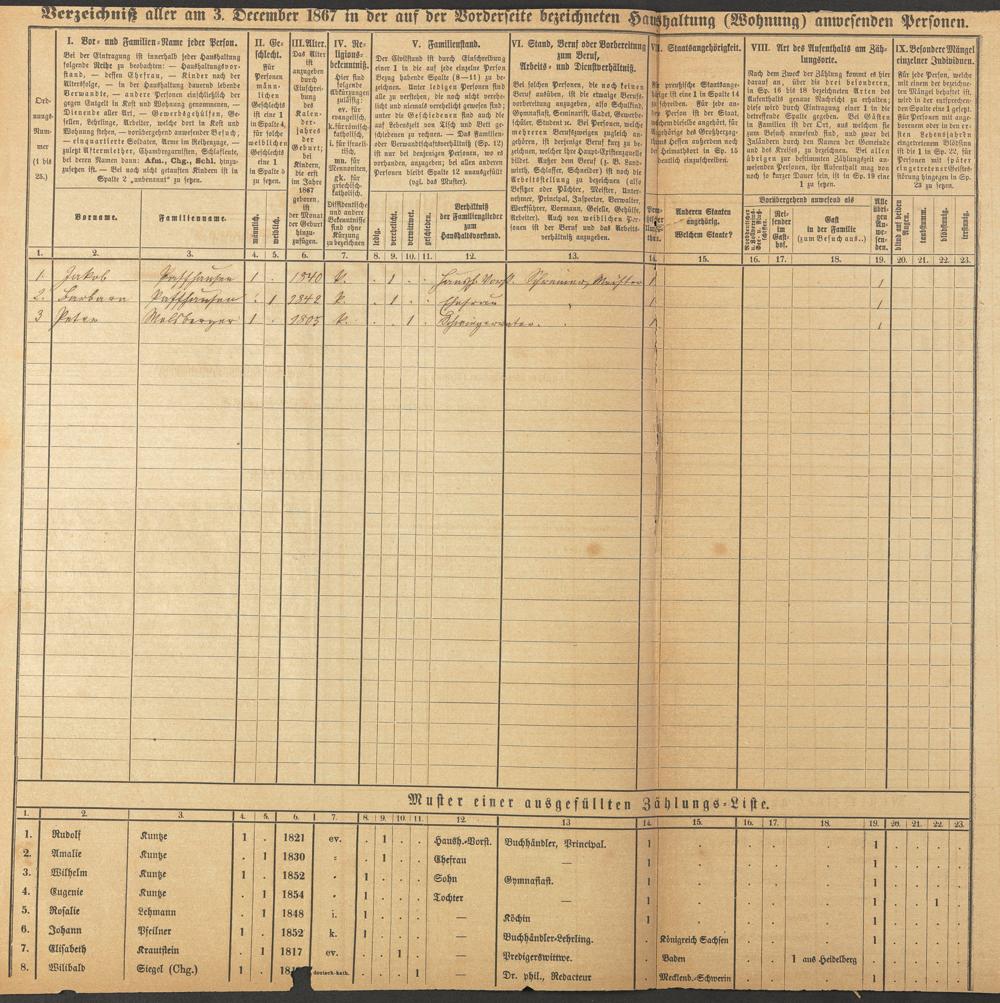 Verzeichniß aller am 3. December 1867 in der auf der Vorderseite bezeichneten Haushaltung (Wohnung) anwesenden Personen.
Ord-
nungs-
Num-
mer
(1 bis
25.)
I. Vor- und Familien-Name jeder Person.
Bei der Eintragung ist innerhalb jeder Haushaltung
folgende Reihe zu beobachten: — Haushaltungsvor-
stand, — dessen Ehefrau, — Kinder nach der
Altersfolge, — in der Haushaltung dauernd lebende
Verwandte, — andere Personen einschließlich der
gegen Entgelt in Kost und Wohnung genommenen, —
Dienende aller Art, — Gewerbsgehülfen, Ge-
sellen, Lehrlinge, Arbeiter, welche dort in Kost und
Wohnung stehen, — vorübergehend anwesender Besuch,
— einquartierte Soldaten, Arme im Reihenzuge, —
zuletzt Aftermiether, Chambregarnisten, Schlafleute,
bei deren Namen dann: Afm., Chg., Schl. hinzu-
zusetzen ist. — Bei noch nicht getauften Kindern ist in
Spalte 2 „unbenannt" zu setzen.
Vorname.
Familienname.
II. Ge-
schlecht.
Für
Personen
männ-
lichen
Geschlechts
ist eine 1
in Spalte 4,
für solche
weiblichen
Geschlechts
eine 1
in Spalte 5
zu setzen.
männlich.
weiblich.
III. Alter.
Das Alter
ist
anzugeben
durch
Einschrei-
bung
des
Kalen-
der-
jahres
der
Geburt;
bei
Kindern,
die erst
im Jahre
1867
geboren,
ist
der Monat
der Geburt
hinzu-
zufügen.
IV. Re-
ligions-
bekenntniß.
Hier sind
folgende
Abkürzungen
zulässig:
ev. für
evangelisch.
k. für römisch
katholisch.
i. für israeli-
tisch.
mn. für
Mennoniten,
gk. für
griechisch-
katholisch.
Dissidentische
und andere
Bekenntnisse
sind ohne
Kürzung
zu bezeichnen
V. Familienstand.
Der Civilstand ist durch Einschreibung
einer 1 in die auf jede einzelne Person
Bezug habende Spalte (8—11) zu be-
zeichnen. Unter ledigen Personen sind
alle zu verstehen, die noch nicht verehe-
licht und niemals verehelicht gewesen sind;
unter die Geschiedenen sind auch die
auf Lebenszeit von Tisch und Bett ge-
schiedenen zu rechnen. — Das Familien-
oder Verwandtschaftsverhältniß (Sp. 12)
ist nur bei denjenigen Personen, wo es
vorhanden, anzugeben; bei allen anderen
Personen bleibt Spalte 12 unausgefüllt
(vgl. das Muster).
ledig.
verehelicht.
verwittwet.
geschieden.
Verhältniß
der Familienglieder
zum
Haushaltsvorstand.
VI. Stand, Beruf oder Vorbereitung
zum Beruf,
Arbeits- und Dienstverhältniß.
Bei solchen Personen, die noch keinen
Beruf ausüben, ist die etwaige Berufs-
vorbereitung anzugeben, also Schulkind,
Gymnasiast, Seminarist, Cadet, Gewerbe-
schüler, Student ꝛc. Bei Personen, welche
mehreren Berufszweigen zugleich an-
gehören, ist derjenige Beruf kurz zu be-
zeichnen, welcher ihre Haupt-Existenzquelle
bildet. Außer dem Beruf (z. B. Land-
wirth, Schlosser, Schneider) ist noch die
Arbeitsstellung zu bezeichnen (also
Besitzer oder Pächter, Meister, Unter-
nehmer, Principal, Inspector, Verwalter,
Werkführer, Vormann, Geselle, Gehülfe,
Arbeiter). Auch von weiblichen Per-
sonen ist der Beruf und das Arbeits-
verhältniß anzugeben.
VII. Staatsangehörigkeit.
Für preußische Staatsange-
hörige ist eine 1 in Spalte 14
zu schreiben. Für jede an-
dere Person ist der Staat,
welchem dieselbe angehört, für
Angehörige des Großherzog-
thums Hessen außerdem noch
der Heimathsort in Sp. 15
deutlich einzuschreiben.
Anderen Staaten
angehörig.
Welchem Staate?
VIII. Art des Aufenthalts am Zäh-
lungsorte.
Nach dem Zweck der Zählung kommt es hier
darauf an, über die drei besonderen,
in Sp. 16 bis 18 bezeichneten Arten des
Aufenthalts genaue Nachricht zu erhalten;
diese wird durch Eintragung einer 1 in die
betreffende Spalte gegeben. Bei Gästen
in Familien ist der Ort, aus welchem sie
zum Besuch anwesend sind, und zwar bei
Inländern durch den Namen der Gemeinde
und des Kreises, zu bezeichnen. Bei allen
übrigen zur bestimmten Zählungszeit an-
wesenden Personen, ihr Aufenthalt mag von
noch so kurzer Dauer sein, ist in Sp. 19 eine
1 zu setzen.
Vorübergehend anwesend als
Rei-
sender
im
Gast-
hof.
Gast
in der Familie
(zum Besuch aus..)
Alle
übri-
gen An-
we-
sen-
den.
IX. Besondere Mängel
einzelner Individuen.
Für jede Person, welche
mit einem der bezeichne-
ten Mängel behaftet ist,
wird in der entsprechen-
den Spalte eine 1 gesetzt.
Für Personen mit ange-
borenem oder in den er-
sten Lebensjahren
eingetretenem Blödsinn
ist die 1 in Sp. 22, für
Personen mit später
eingetretener Geistes-
störung hingegen in Sp.
23 zu setzen.
blind auf beiden
Augen.
taubstumm.
blödsinnig.
irrsinnig.
1. 2. 3. 4. 5. 6. 7. 8. 9. 10. 11. 12. 13. 14. 15. 16. 17. 18. 19. 20. 21. 22. 23.
1. Jakob Paffhausen 1 . 1840 k. . 1 . . Haush. Vorst. Schreiner, Meister 1 1
2. Barbara Paffhausen . 1 1842 k. . 1 . . Ehefrau 1 1
3 Peter Melsberger 1 . 1805 k. . . 1 . Schwiegervater. 1 1
Muster einer ausgefüllten Zählungs-Liste.
1. 2. 3. 4. 5. 6. 7. 8. 9. 10. 11. 12. 13 14. 15. 16. 17. 18. 19. 20. 21. 22. 23.
1. Rudolf Kuntze 1 . 1821 ev. . 1 . . Haush.-Vorst. Buchhändler, Principal. 1 . . . . 1 . . . .
2. Amalie Kuntze . 1 1830 „ . 1 . . Ehefrau — 1 . . . . 1 . . . .
3. Wilhelm Kuntze 1 . 1852 „ 1 . . . Sohn Gymnasiast. 1 . . . . 1 . . . .
4. Eugenie Kuntze . 1 1854 „ 1 . . . Tochter — 1 . . . . 1 . . 1 .
5. Rosalie Lehmann . 1 1848 i. 1 . . . — Köchin 1 . . . . 1 . . . .
6. Johann Pfeilner 1 . 1852 k. 1 . . . — Buchhändler-Lehrling. . Königreich Sachsen . . . 1 . . . .
7. Elisabeth Krautstein . 1 1817 ev. . . 1 . — Predigerswittwe. . Baden . . 1 aus Heidelberg . . . . .
8. Wilibald Siegel (Chg.) 1 . deutsch-kath. . . . 1 — Dr. phil., Redacteur . Mecklenb.-Schwerin . . . 1 . . . .